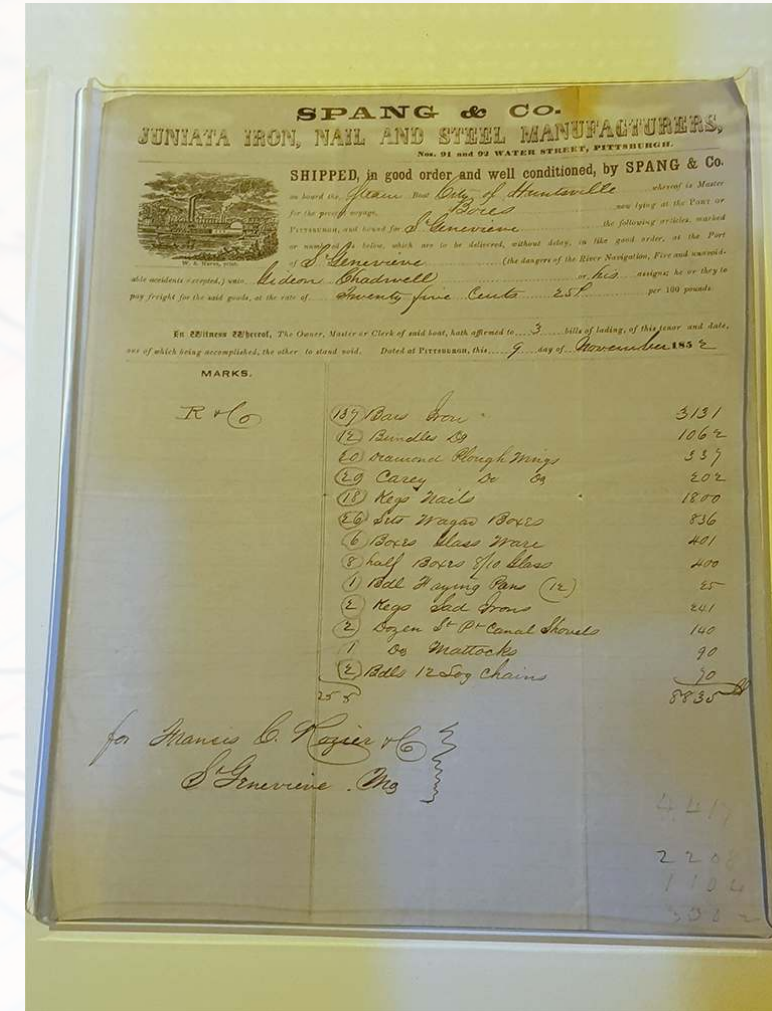 SPANG & CO.
JUNIATA IRON, NAIL AND STEEL MANUFACTURERS,
Nos. 91 and 92 WATER STREET, PITTSBURGH.
SHIPPED, in good order and well conditioned, by SPANG & Co.
on board the Steam Boat City of Huntsville whereof is Master
for the present voyage, Bores now lying at the PORT of
PITTSBURGH, and bound for St Genevieve the following articles, marked
or numbered as below, which are to be delivered, without delay, in like good order, at the Port
of St Genevieve (the dangers of the River Navigation, Fire and unavoid-
able accidents excepted,) unto Gideon Chadwell or his assigns he or they to
pay freight for the said goods, at the rate of Twenty five Cents 25¢ per 100 pounds
In Witness Whereof, The Owner, Master or Clerk of said boat, hath affirmed to 3 bills of lading, of this tenor and date,
one of which being accomplished, the other to stand void. Dated at PITTSBURGH, this 9 day of November 1852
MARKS.
R & Co
137 Bars Iron 3131
12 Bundles Do 1062
20 Diamond Plough Wings 337
20 Carey Do Do 202
18 Kegs Nails 1800
26 Sets Wagon Boxes 836
6 Boxes Glass Ware 401
8 half Boxes 8/10 Glass 400
1 Bdl Frying Pans (12) 25
2 Kegs Sad Irons 241
2 Dozen St Pt Canal Shovels 140
1 Do Mattocks 90
2 Bdls 12 Log Chains 70
255 8835
for Francis C. Rozier & Co
St Genevieve Mo